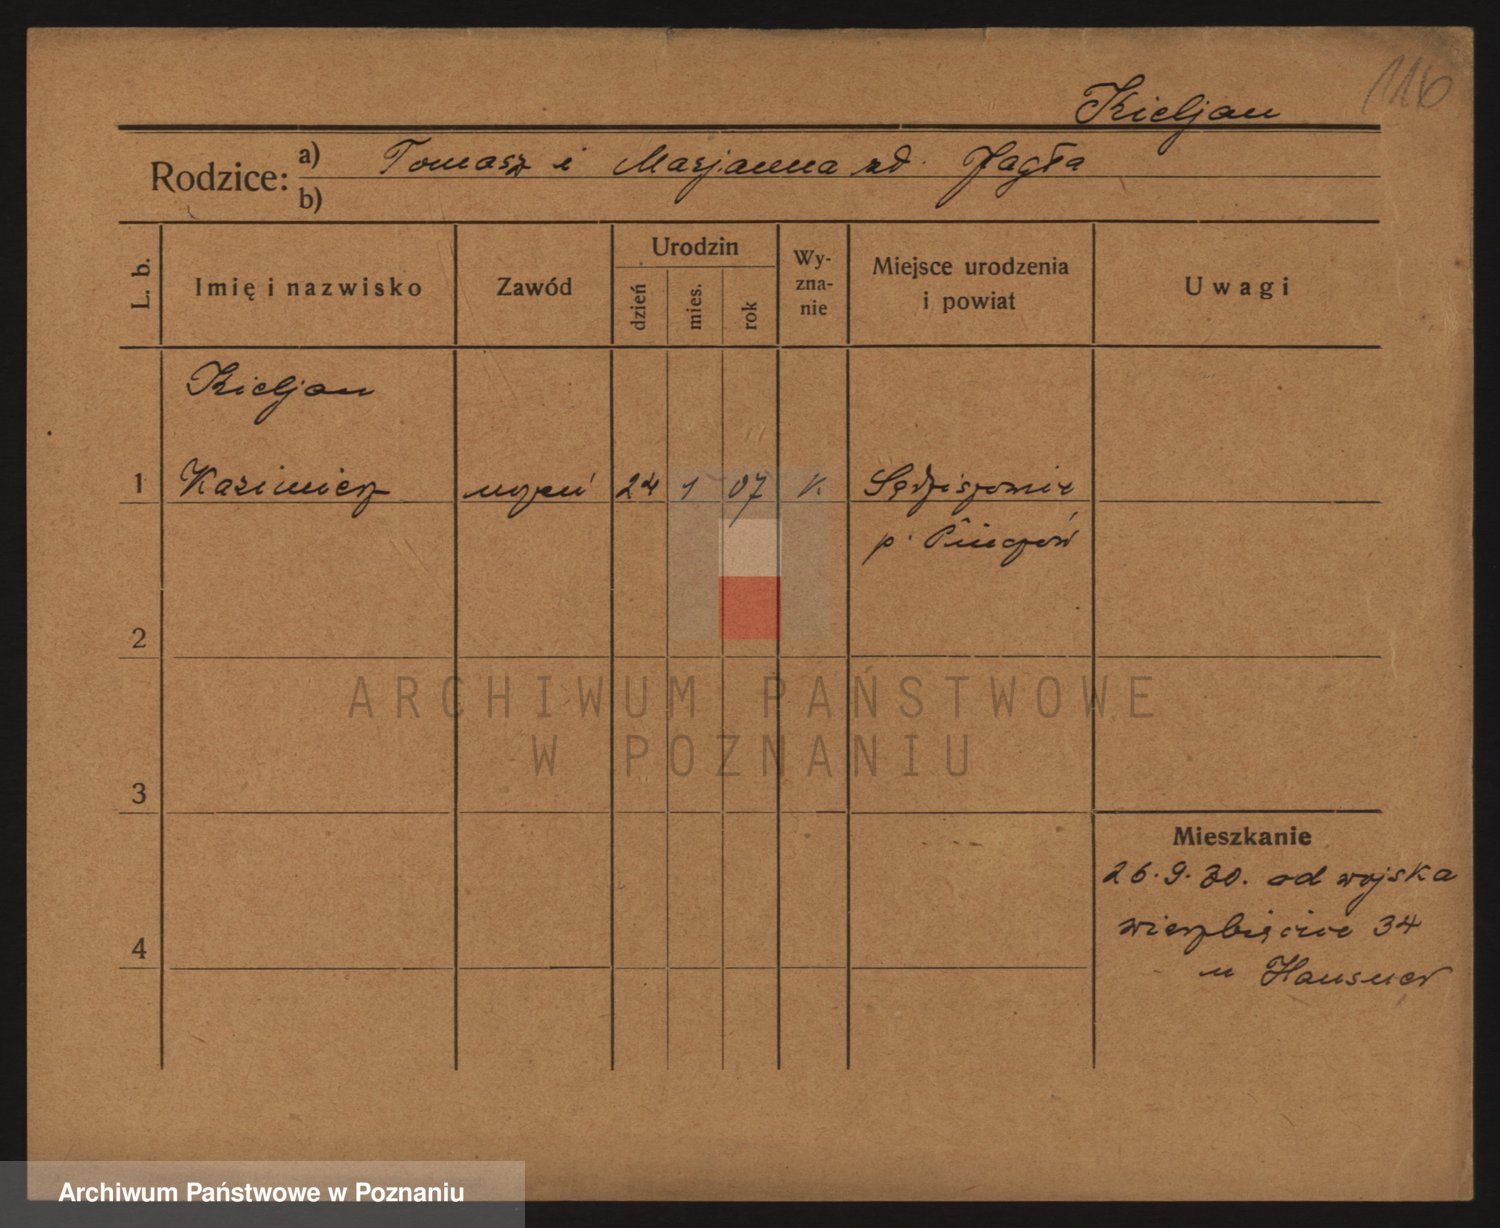 116
Kieljan
Rodzice:
a) Tomasz i Marjanna zd. Jagła
b)
L. b.
Imię i nazwisko
Zawód
Urodzin
dzień
mies.
rok
Wy-
zna-
nie
Miejsce urodzenia
i powiat
Uwagi
Kieljan
1 Kazimierz uczeń 24 1 07 k. Sędziszowie
p. Pińczów
2
3
4
Mieszkanie
26.9.30. od wojska
wierzbięcice 34
u Hausner
ARCHIWUM PAŃSTWOWE
W POZNANIU
Archiwum Państwowe w Poznaniu